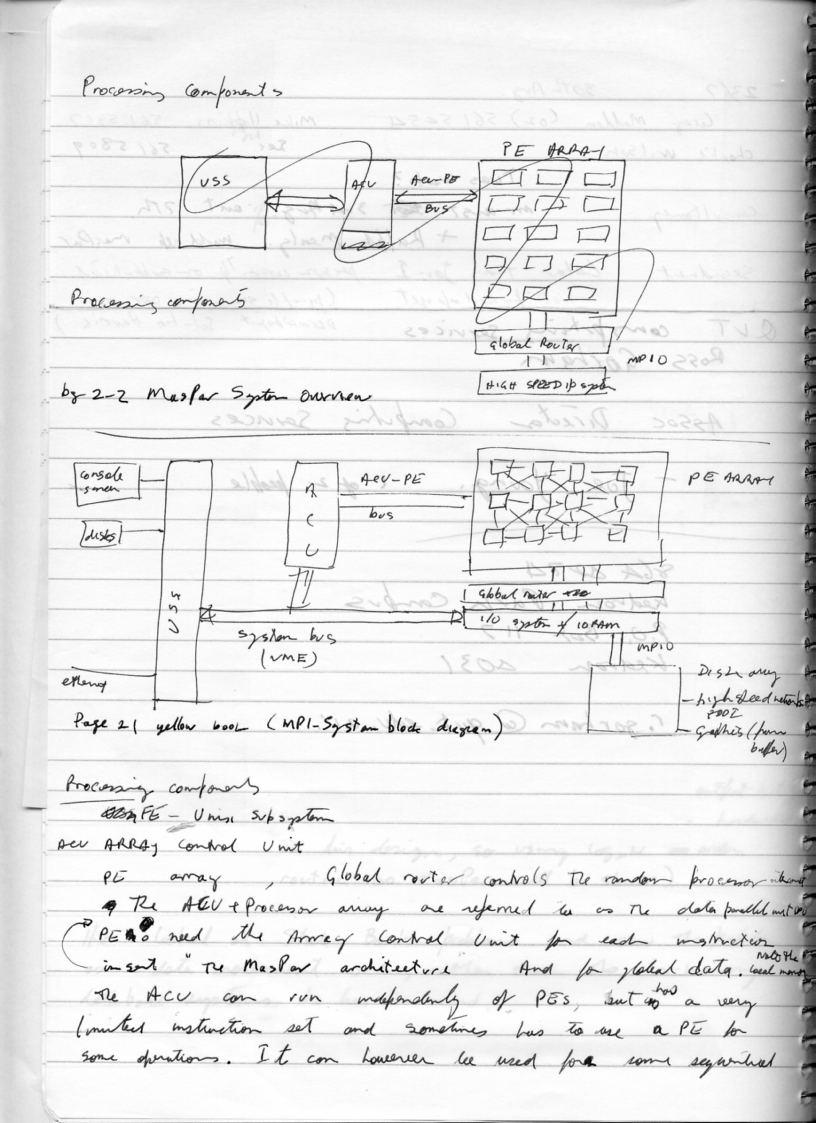 Processing components
PE ARRAY
USS
ACU
ACU-PE
BUS
Processing components
Global Router
MPIO
HIGH SPEED I/O system
2-2 MasPar System Overview
console
screen
disks
USS
ACU
ACU-PE
bus
PE ARRAY
Global router
I/O system + IORAM
system bus
(VME)
MPIO
ethernet
Disk array
high speed network
Graphics (frame
buffer)
Page 21 yellow book (MP1-System block diagram)
Processing components
FE - Unix Subsystem
ACU ARRAY Control Unit
PE array , Global router controls the random processor
The ACU + Processor array are referred to as the data parallel unit
PE need the Array Control Unit for each instruction
insert "The MasPar architecture" And for global data. local memory
the ACU can run independently of PEs, but has a very
limited instruction set and sometimes has to use a PE for
some operations. It can however be used for some sequential